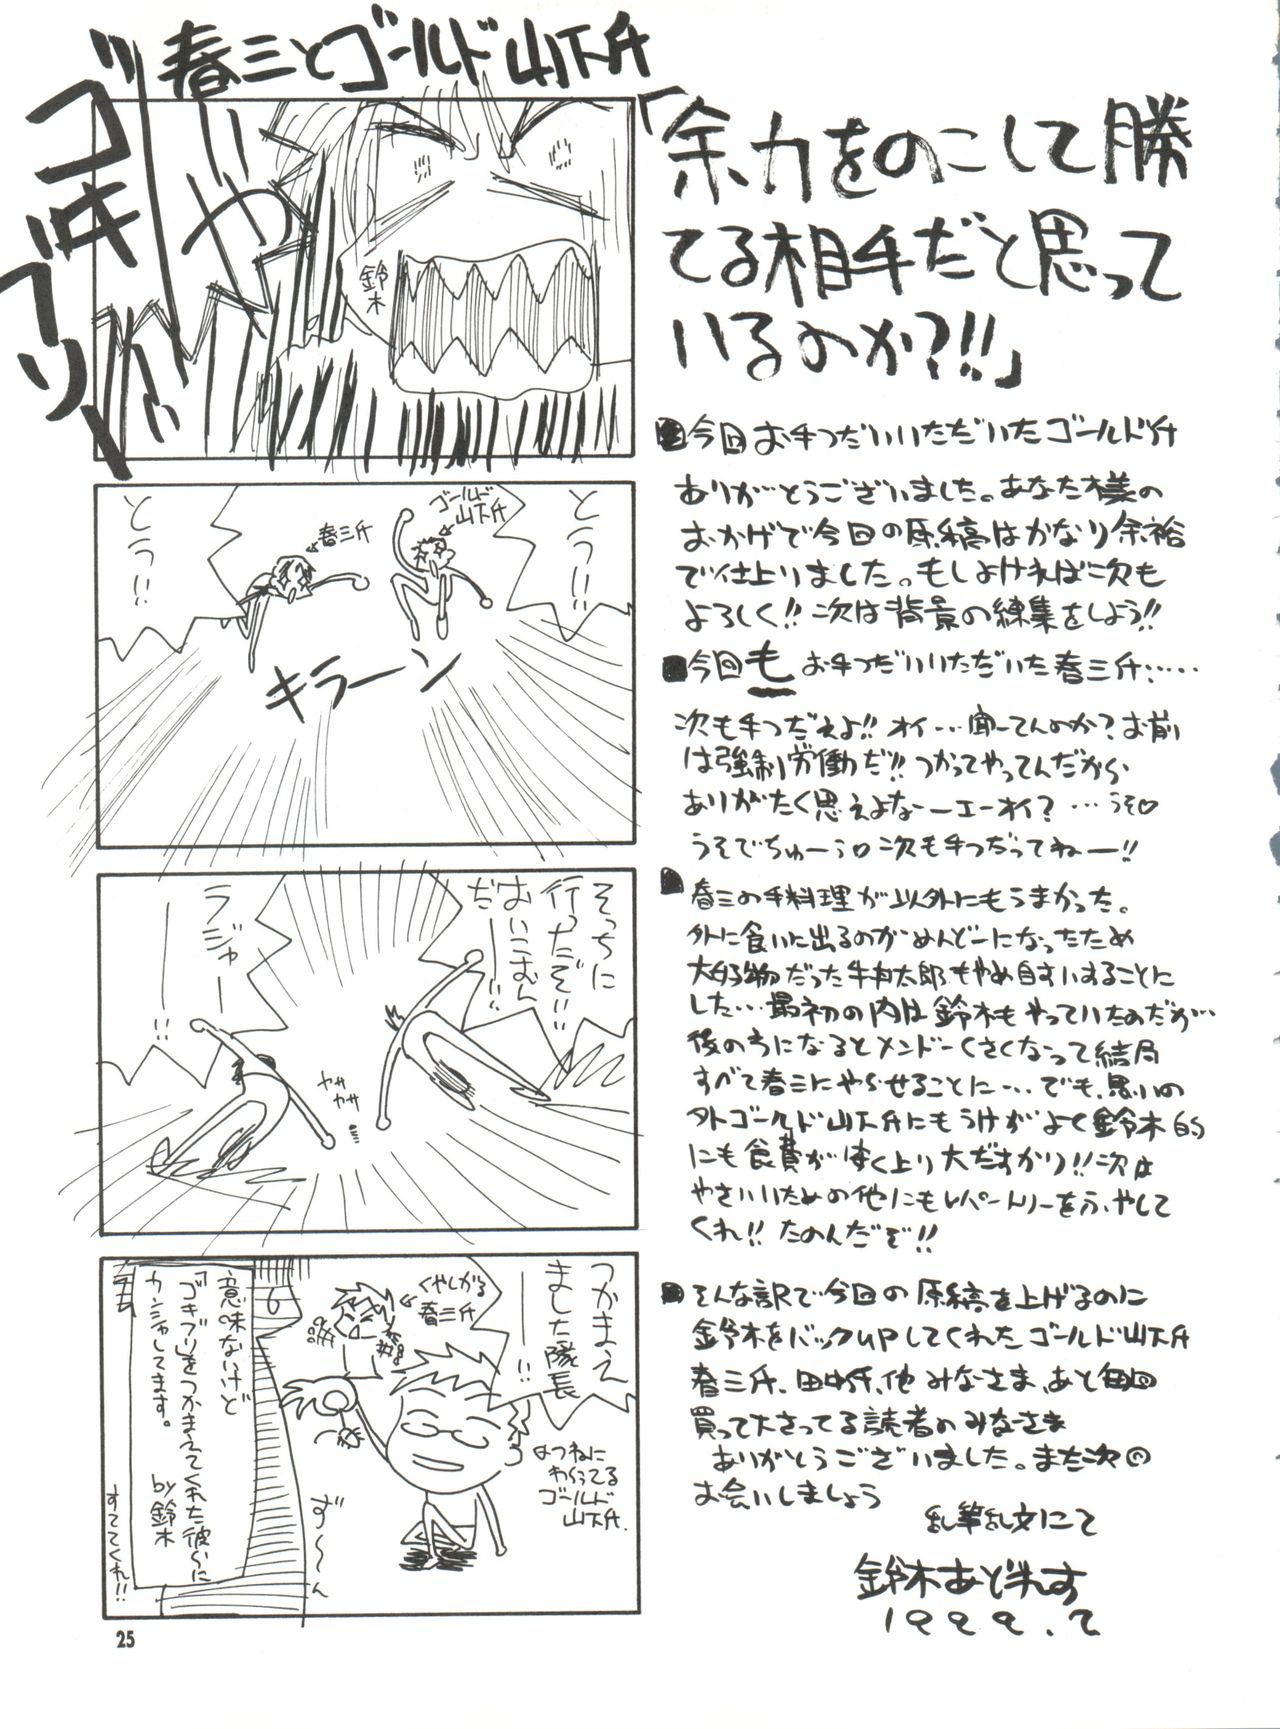 春三とゴールド山下氏
ゴキブリ
じゃー
鈴木
ゴールド
山下氏
春三氏
とうっ!!
とうっ!!
キラーン
そっちに
行ったぞ!!
おいこむん
だーー!!
ラジャーー!!
ササ
ササ
つかまえ
ました隊長
ーー!!
くやしがる
春三氏
よつねに
わらってる
ゴールド
山下氏.
ず〜〜ん
意味ないけど
「ゴキブリをつかまえてくれた彼らに
カンシャしてます。
by鈴木
すててくれ!!
25
「余力をのこして勝
てる相手だと思って
いるのか?!!」
■今回お手つだいいただいたゴールド氏
ありがとうございました。あなた様の
おかげで今回の原稿はかなり余裕
で仕上りました。もしよければ次も
よろしく!!次は背景の練集をしよう!!
■今回もお手つだいいただいた春三氏……
次も手つだえよ!!オイ…聞ーてんのか?お前
は強制労働だ!!つかってやってんだから
ありがたく思えよなーエーオイ?…うそ♡
うそでちゅーぅ♡次も手つだってねー!!
■春三の手料理が以外にもうまかった。
外に食いに出るのがめんどーになったため
大好物だった牛丼太郎もやめ自すいすることに
した…最初の内は鈴木もやっていたのだが…
後の方になるとメンドーくさくなって結局
すべて春三にやらせることに…でも、思いの
外ゴールド山下氏にもうけがよく鈴木的
にも食費がゆく上り大だすかり!!次は
やさいいための他にもレパートリーをふやして
くれ!!たのんだぞ!!
■そんな訳で今回の原稿を上げるのに
鈴木をバックupしてくれたゴールド山下氏
春三氏、田中氏、他みなさま、あと毎回
買って下さってる読者のみなさま
ありがとうございました。また次の
お会いしましょう
乱筆乱文にて
鈴木あどれす
1999.2